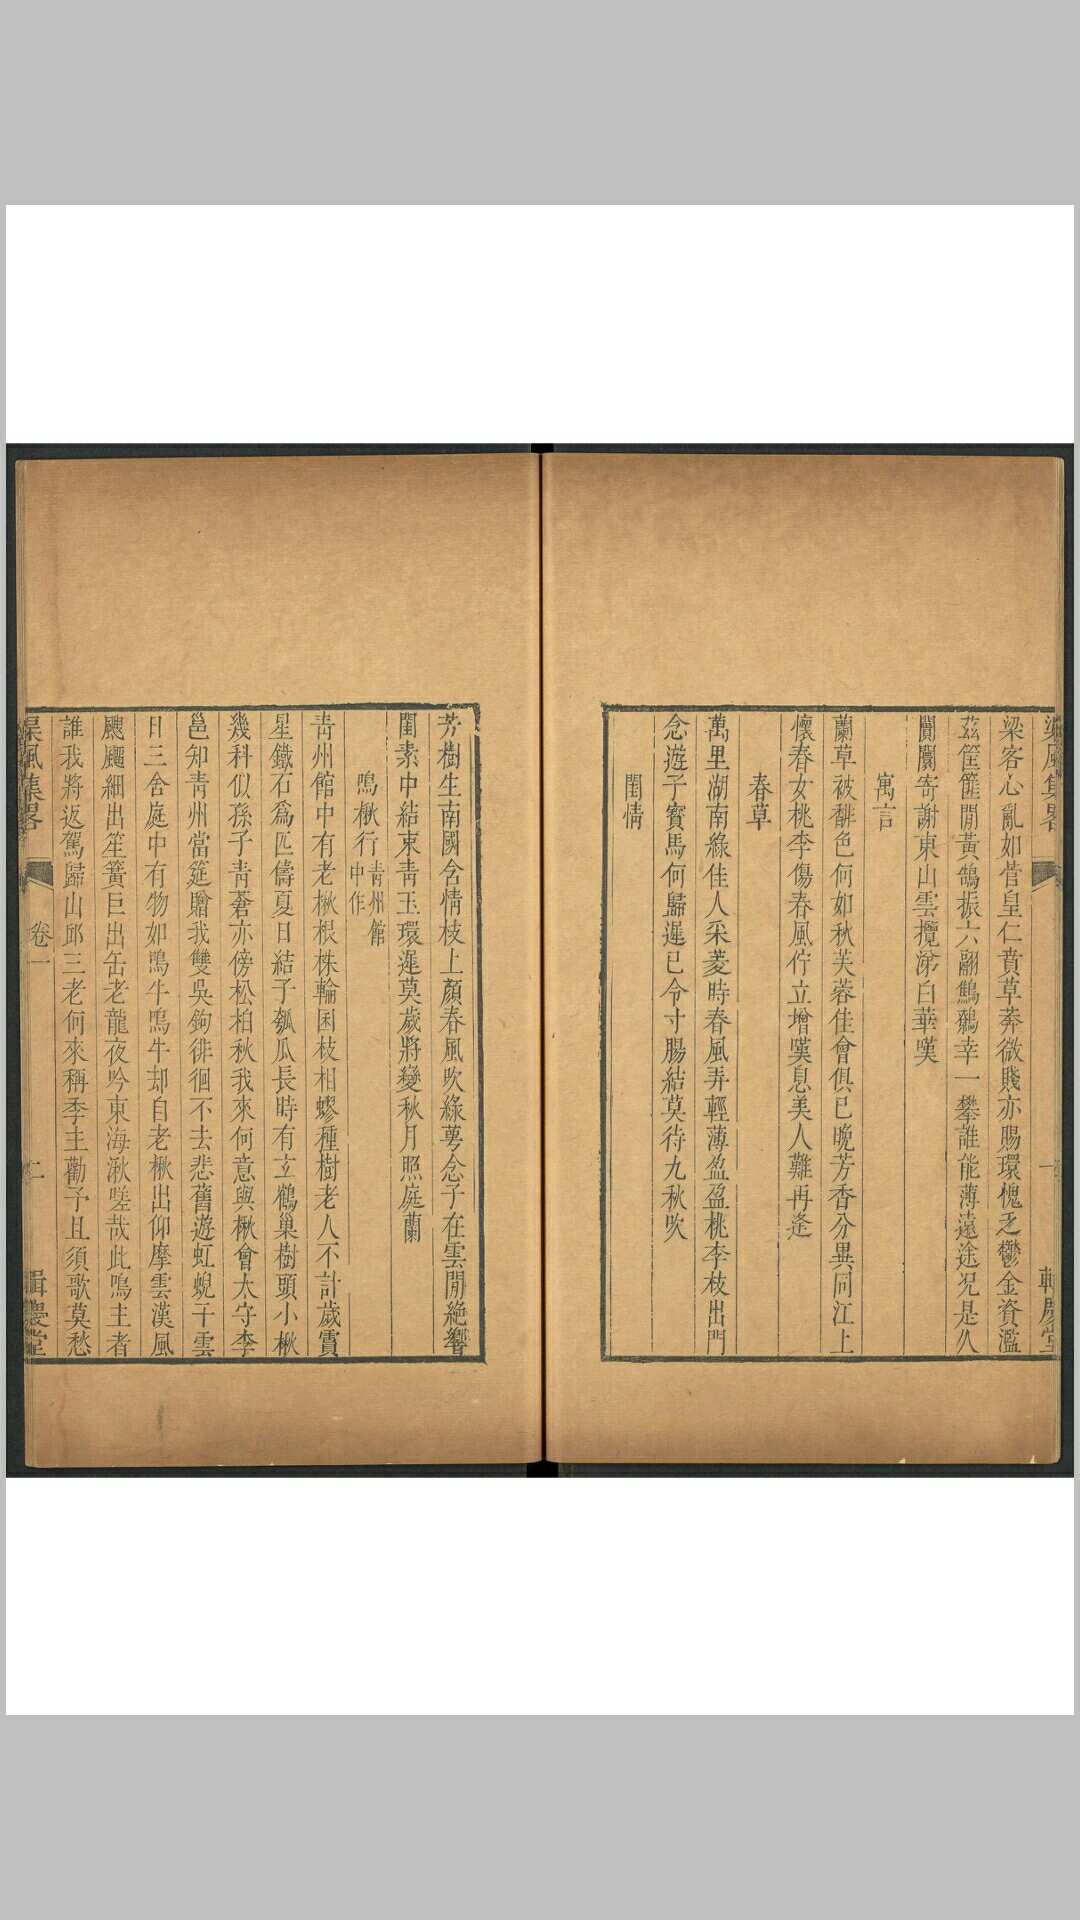 梁風集畧
一
輯慶堂
梁客心亂如菅皇仁賁草莽微賤亦賜環愧乏鬱金資濫
茲筐篚閒黃鵠振六翮鷦鷯幸一攀誰能薄遠途况是久
闤闠寄謝東山雲攬涕白華嘆
寓言
蘭草被馡色何如秋芙蓉佳會俱已晚芳香分異同江上
懷春女桃李傷春風佇立增嘆息美人難再逢
春草
萬里湖南綠佳人采菱時春風弄輕薄盈盈桃李枝出門
念遊子寳馬何歸遲已令寸腸結莫待九秋吹
閨情
芳樹生南國含情枝上顏春風吹綠萼念子在雲閒絶響
閨素中結束靑玉環遲莫歲將變秋月照庭蘭
鳴楸行靑州館中作
靑州館中有老楸根株輪囷枝相蟉種樹老人不計歲霣
星鐵石爲匹儔夏日結子瓠瓜長時有玄鶴巢樹頭小楸
幾科似孫子靑蒼亦傍松柏秋我來何意與楸會太守李
邑知靑州當筵贈我雙吳鉤徘徊不去悲舊遊虹蜺干雲
日三舍庭中有物如鳴牛鳴牛却自老楸出仰摩雲漢風
颼飀細出笙簧巨出缶老龍夜吟東海湫嗟哉此鳴主者
誰我將返駕歸山邱三老何來稱季主勸予且須歌莫愁
梁風集畧
卷一
二
輯慶堂